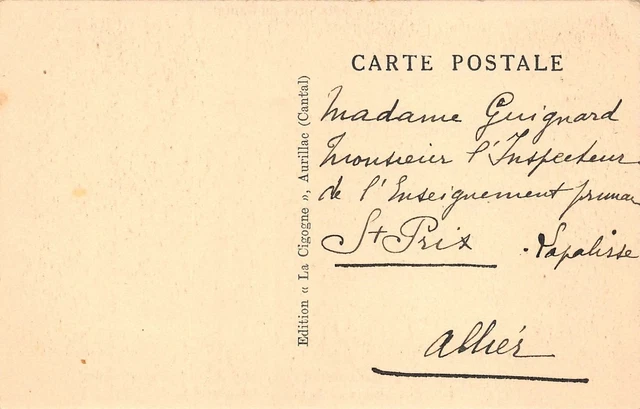 CARTE POSTALE
Edition « La Cigogne », Aurillac (Cantal)
Madame Guignard
Monsieur l'Inspecteur
de l'Enseignement primai
St Prix
Lapalisse
Allier